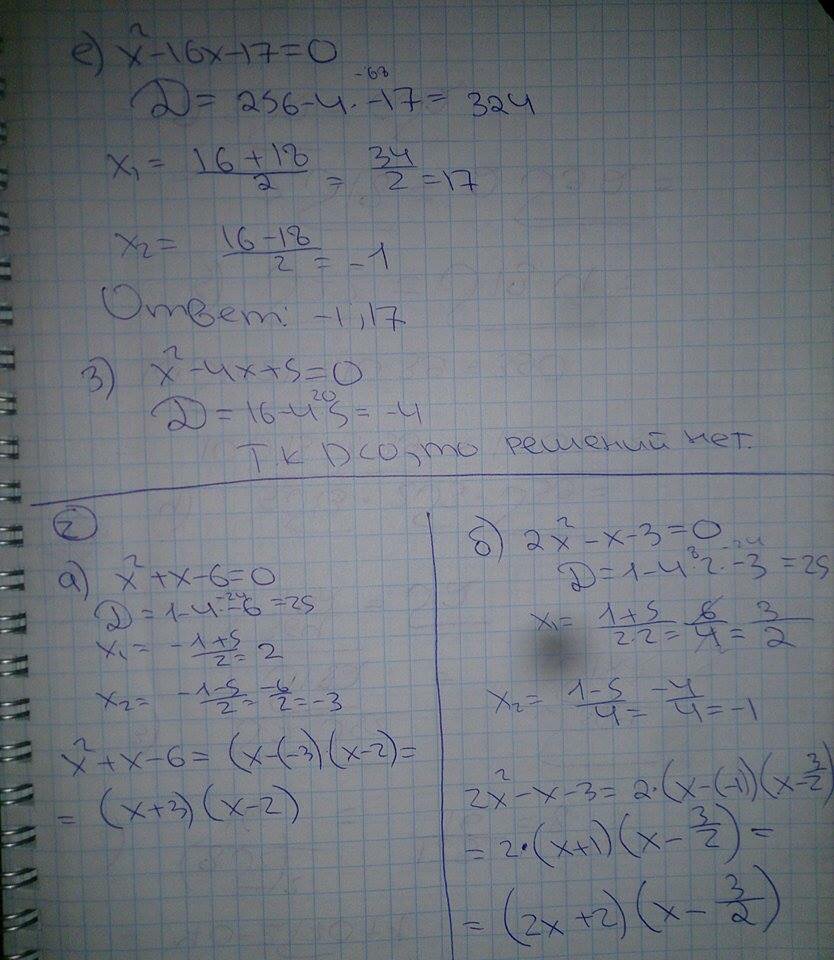 е) x²-16x-17=0
D = 256-4·-17 = 324
-68
x₁ = (16+18)/2 = 34/2 = 17
x₂ = (16-18)/2 = -1
Ответ: -1; 17
з) x²-4x+5=0
D = 16-4·5 = -4
20
Т.к D<0, то решений нет.
②
а) x²+x-6=0
D = 1-4·-6 = 25
-24
x₁ = (-1+5)/2 = 2
x₂ = (-1-5)/2 = -6/2 = -3
x²+x-6 = (x-(-3)(x-2) =
= (x+3)(x-2)
б) 2x²-x-3=0
D = 1-4·2·-3 = 25
-24
x₁ = (1+5)/(2·2) = 6/4 = 3/2
3
x₂ = (1-5)/4 = -4/4 = -1
2x²-x-3 = 2·(x-(-1)(x-3/2)
= 2·(x+1)(x-3/2) =
= (2x+2)(x-3/2)